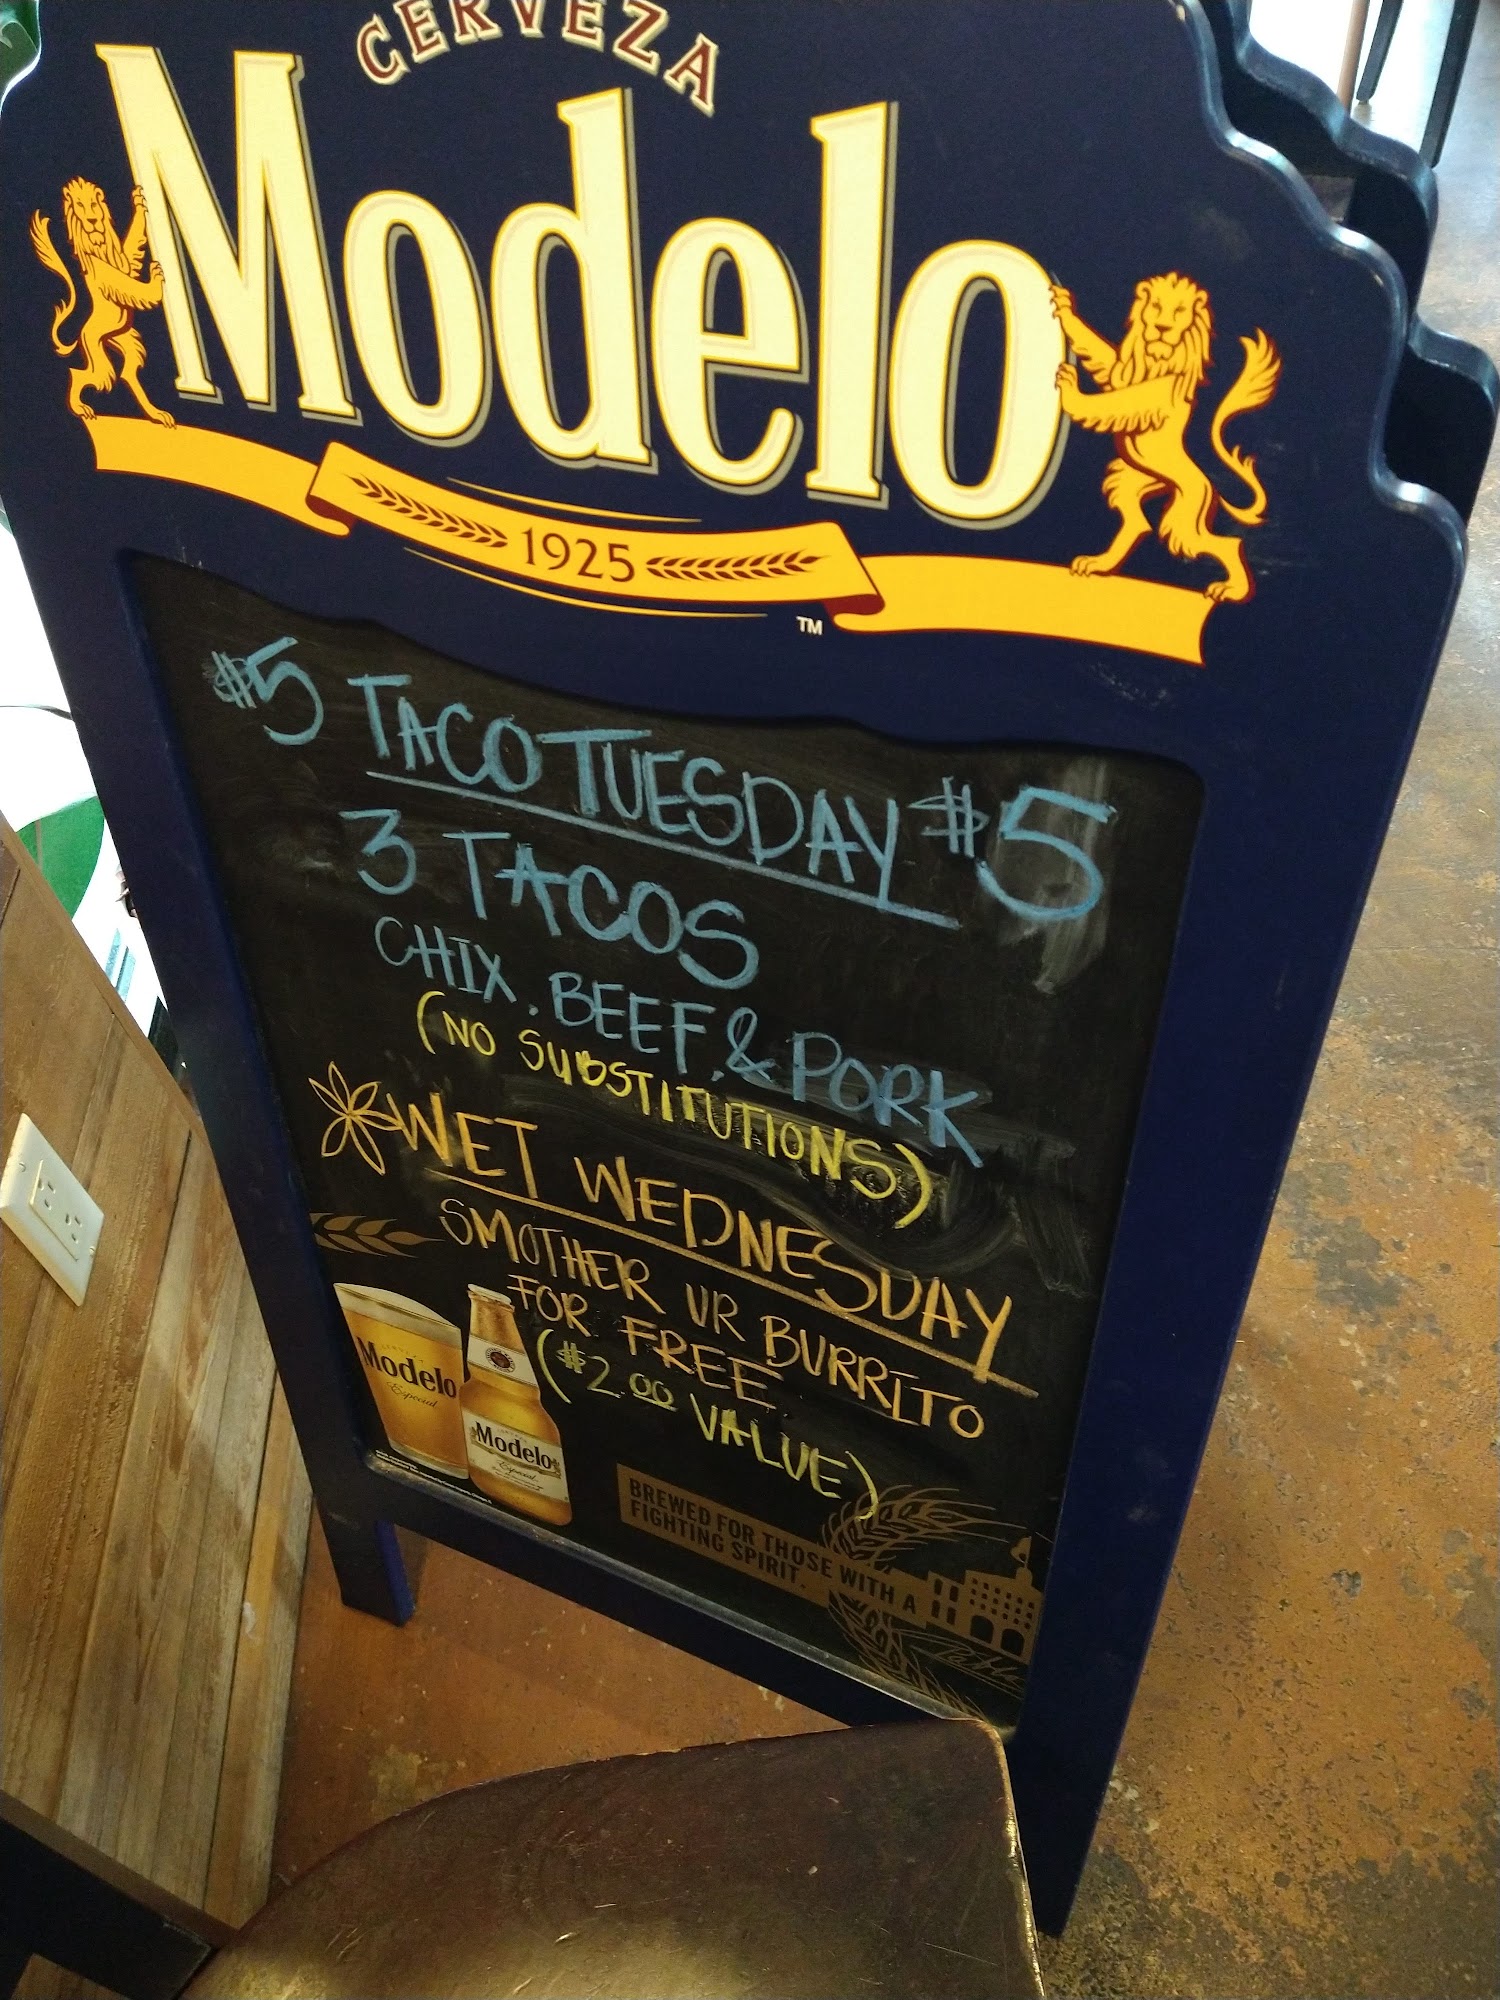 CERVEZA
Modelo
1925
TM
$5 TACO TUESDAY $5
3 TACOS
CHIX, BEEF, & PORK
(NO SUBSTITUTIONS)
WET WEDNESDAY
SMOTHER UR BURRITO
FOR FREE
($2.00 VALUE)
Modelo
Especial
Modelo
Especial
BREWED FOR THOSE WITH A
FIGHTING SPIRIT.